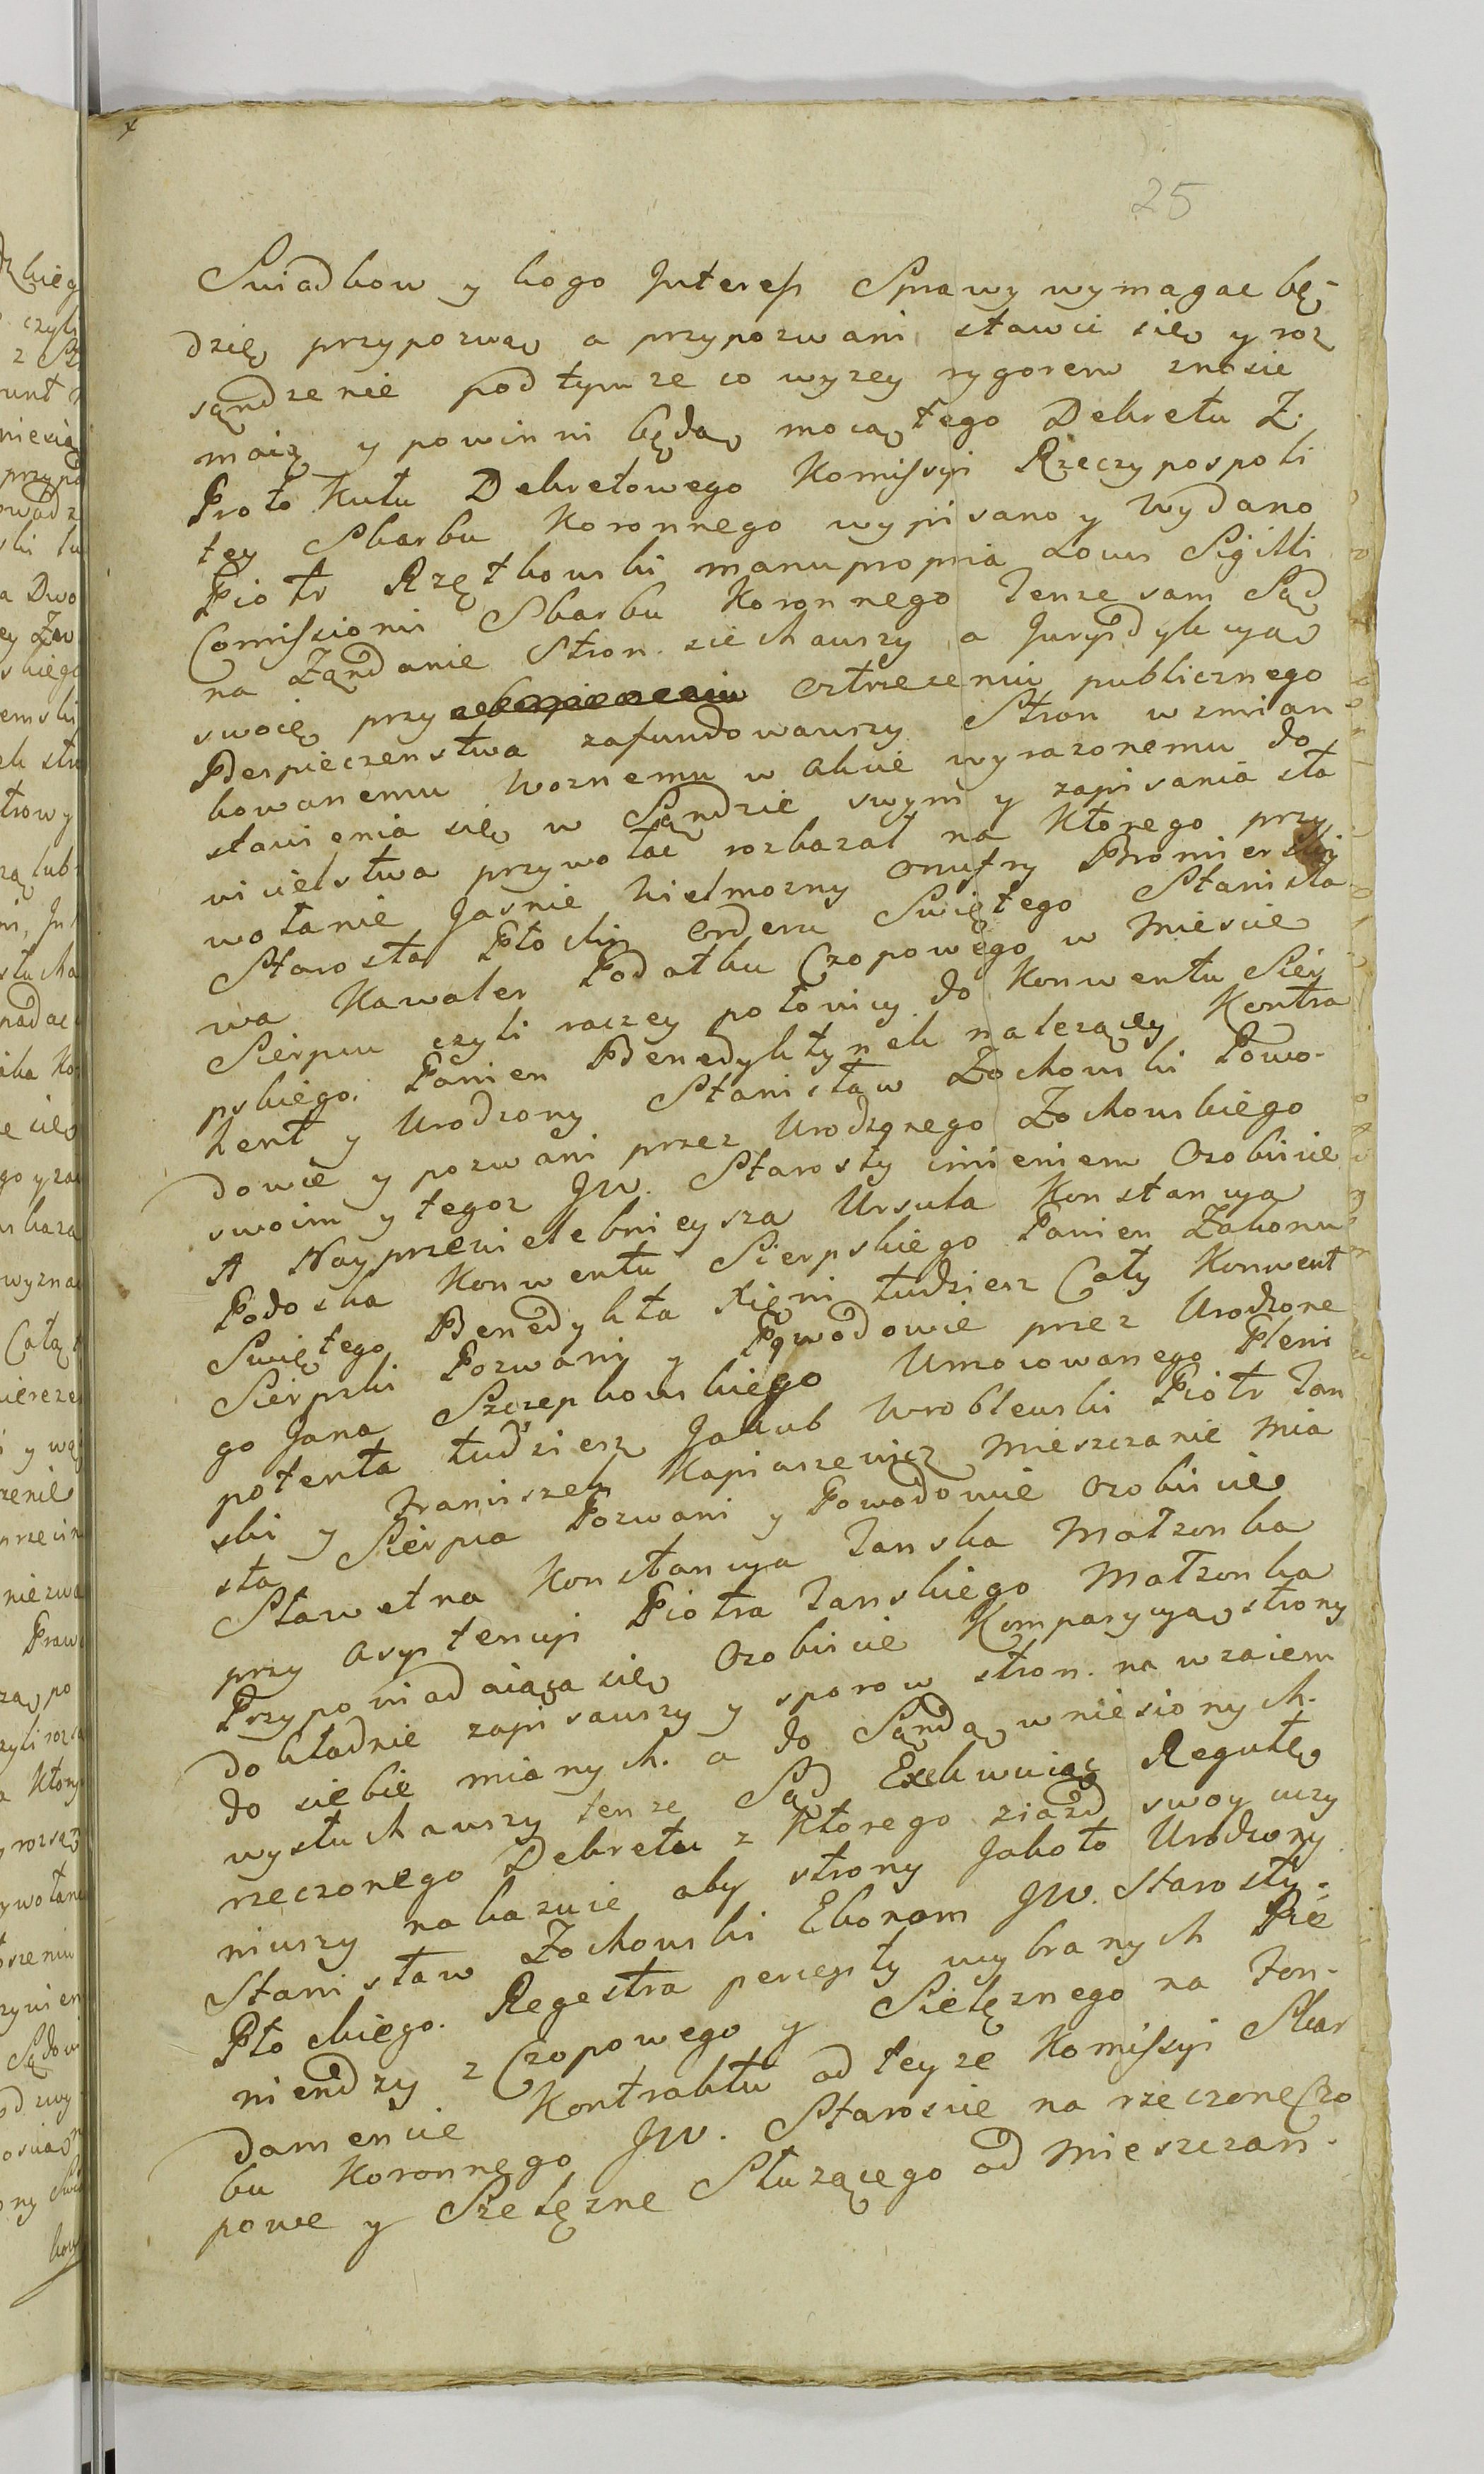 25
Swiadkow y kogo Interess Sprawy wymagac bę-
dzię przypozwą a przypozwani stawic się y roz
sądzenie pod tymze co wyzey rygorem znosic
maią y powinni będą mocą tego Dekretu Z
Protokułu Dekretowego Komissyi Rzeczypospoli
tey Skarbu Koronnego wypisano y wydano
Piotr Rzętkowski manu propria Locus Sigilli
Comissionis Skarbu Koronnego Tenze sam Sąd
na Ządanie Stron ziechawszy a Juryzdykcyą
swoię przy ostrzezeniu publicznego
Bespieczenstwa zafundowawszy Stron wzmian
kowanemu woznemu w Akcie wyrazonemu do
stawienia się w Sądzie swym y zapisania sta
wicielstwa przywołac rozkazał na Ktorego przy
wołanie Jasnie Wielmozny Onufry Bromierski
Starosta Płocki Orderu Swiętego Stanisła
wa Kawaler Podatku Czopowego w Miescie
Sierpcu czyli raczey połowicy do Konwentu Sier
pskiego Panien Benedyktynek nalezącey Kontra
hent y Urodzony Stanisław Zochowski Powo-
dowie y pozwani przez Urodzonego Zochowskiego
swoim y tegoz JW. Starosty imieniem Osobiscie
A Nayprzewielebnieysza Ursula Konstancya
Podoska Konwentu Sierpskiego Panien Zakonu
Swiętego Benedykta Xięni tudziesz Cały Konwent
Sierpski Pozwani y Powodowie przez Urodzone
go Jana Szczepkowskiego Umocowanego Pleni
potenta tudziesz Jakub Wroblewski Piotr Jan
ski y Franciszek Kapiaszewicz Mieszczanie Mia
sta Sierpca Pozwani y Powodowie Osobiscie
Sławetna Konstancya Janska Małzonka
przy Asystencyi Piotra Janskiego Małzonka
Przypowiadaiąca się Osobiscie Komparycyą strony
dokładnie zapisawszy y sporow stron na wzaiem
do siebie mianych a do Sądą wniesionych
wysłuchawszy tenze Sąd Exekwuiąc Regułę
rzeczonego Dekretu z Ktorego ziazd swoy uczy
niwszy nakazuie aby strony Jakoto Urodzony
Stanisław Zochowski Ekonom JW. Starosty
Płockiego Regestra percepty wybranych Pie
niendzy z Czopowego y Szelęznego na Fon-
damencie Kontraktu od teyze Komissyi Skar
bu Koronnego JW. Staroscie na rzeczone Czo
powe y Szelęzne Słuzącego od Mieszczan